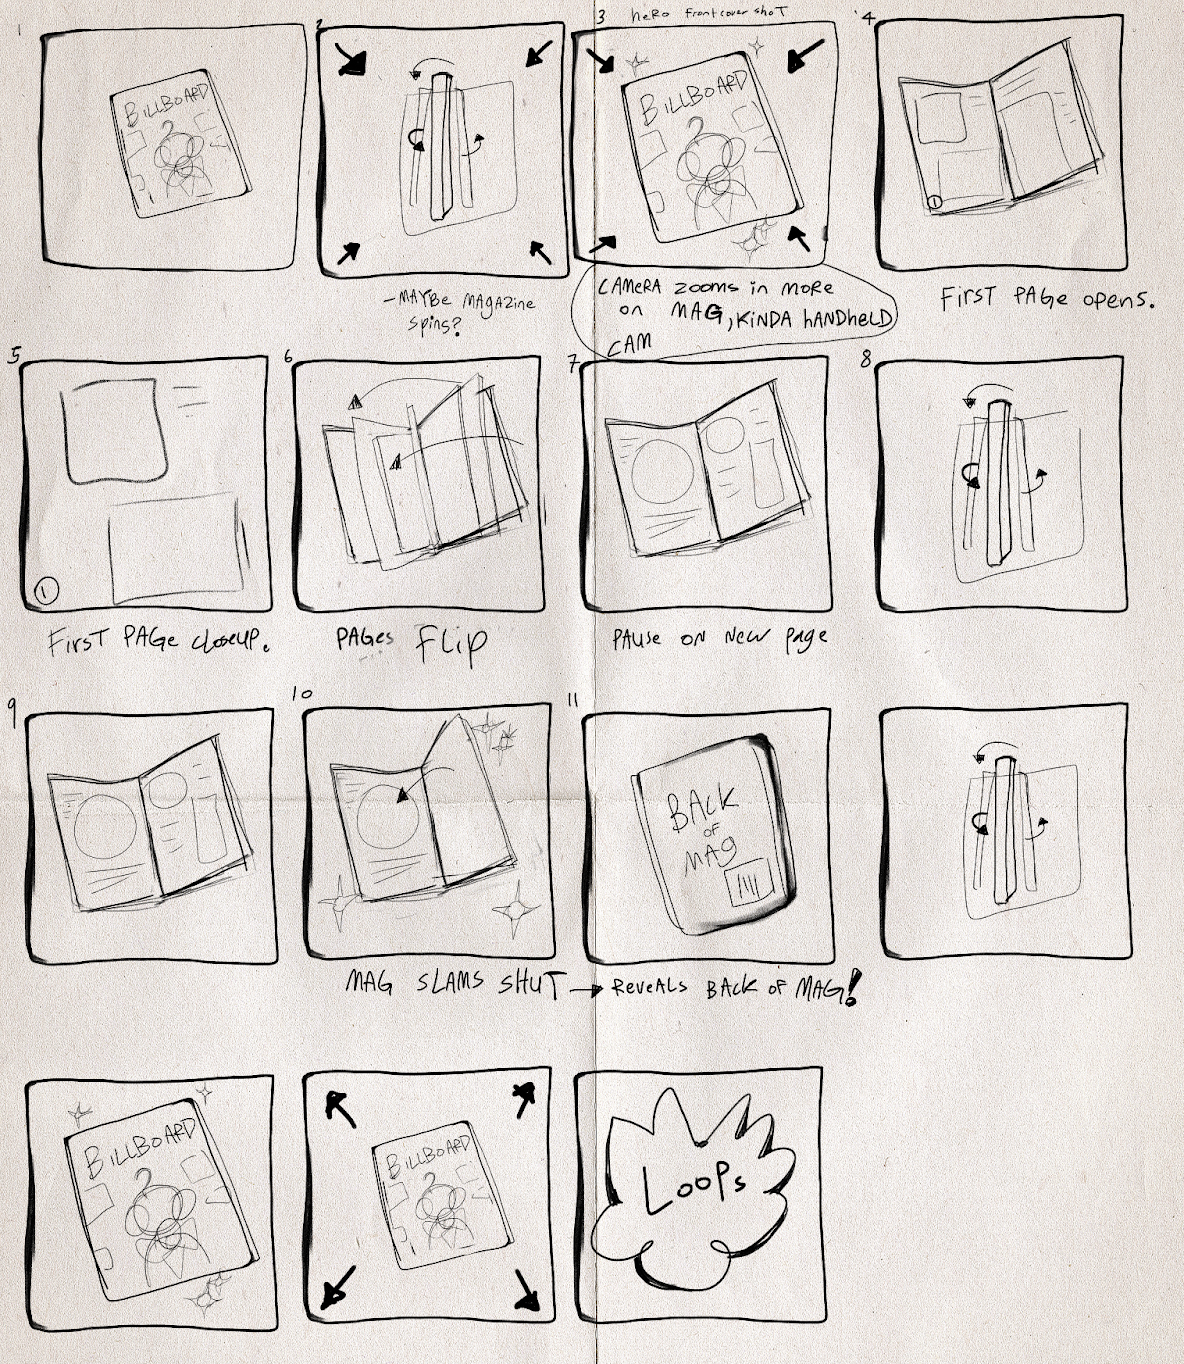 1
BILLBOARD
2
-MAYBE MAgAZiNe
spiNs?
3 heRo frontcover shoT
BILLBOARD
CAMeRA zooms in moRe
on MAG, KiNDA hANDheLD
CAM
4
1
FirsT PAGe opens.
5
1
FirsT PAGe closeup.
6
PAGes fLip
7
PAUse on New page
8
9
10
MAG SLAMS SHUT → ReveALs BACK of MAG!
11
BACK
OF
MAg
BILLBOARD
BILLBOARD
LooPs